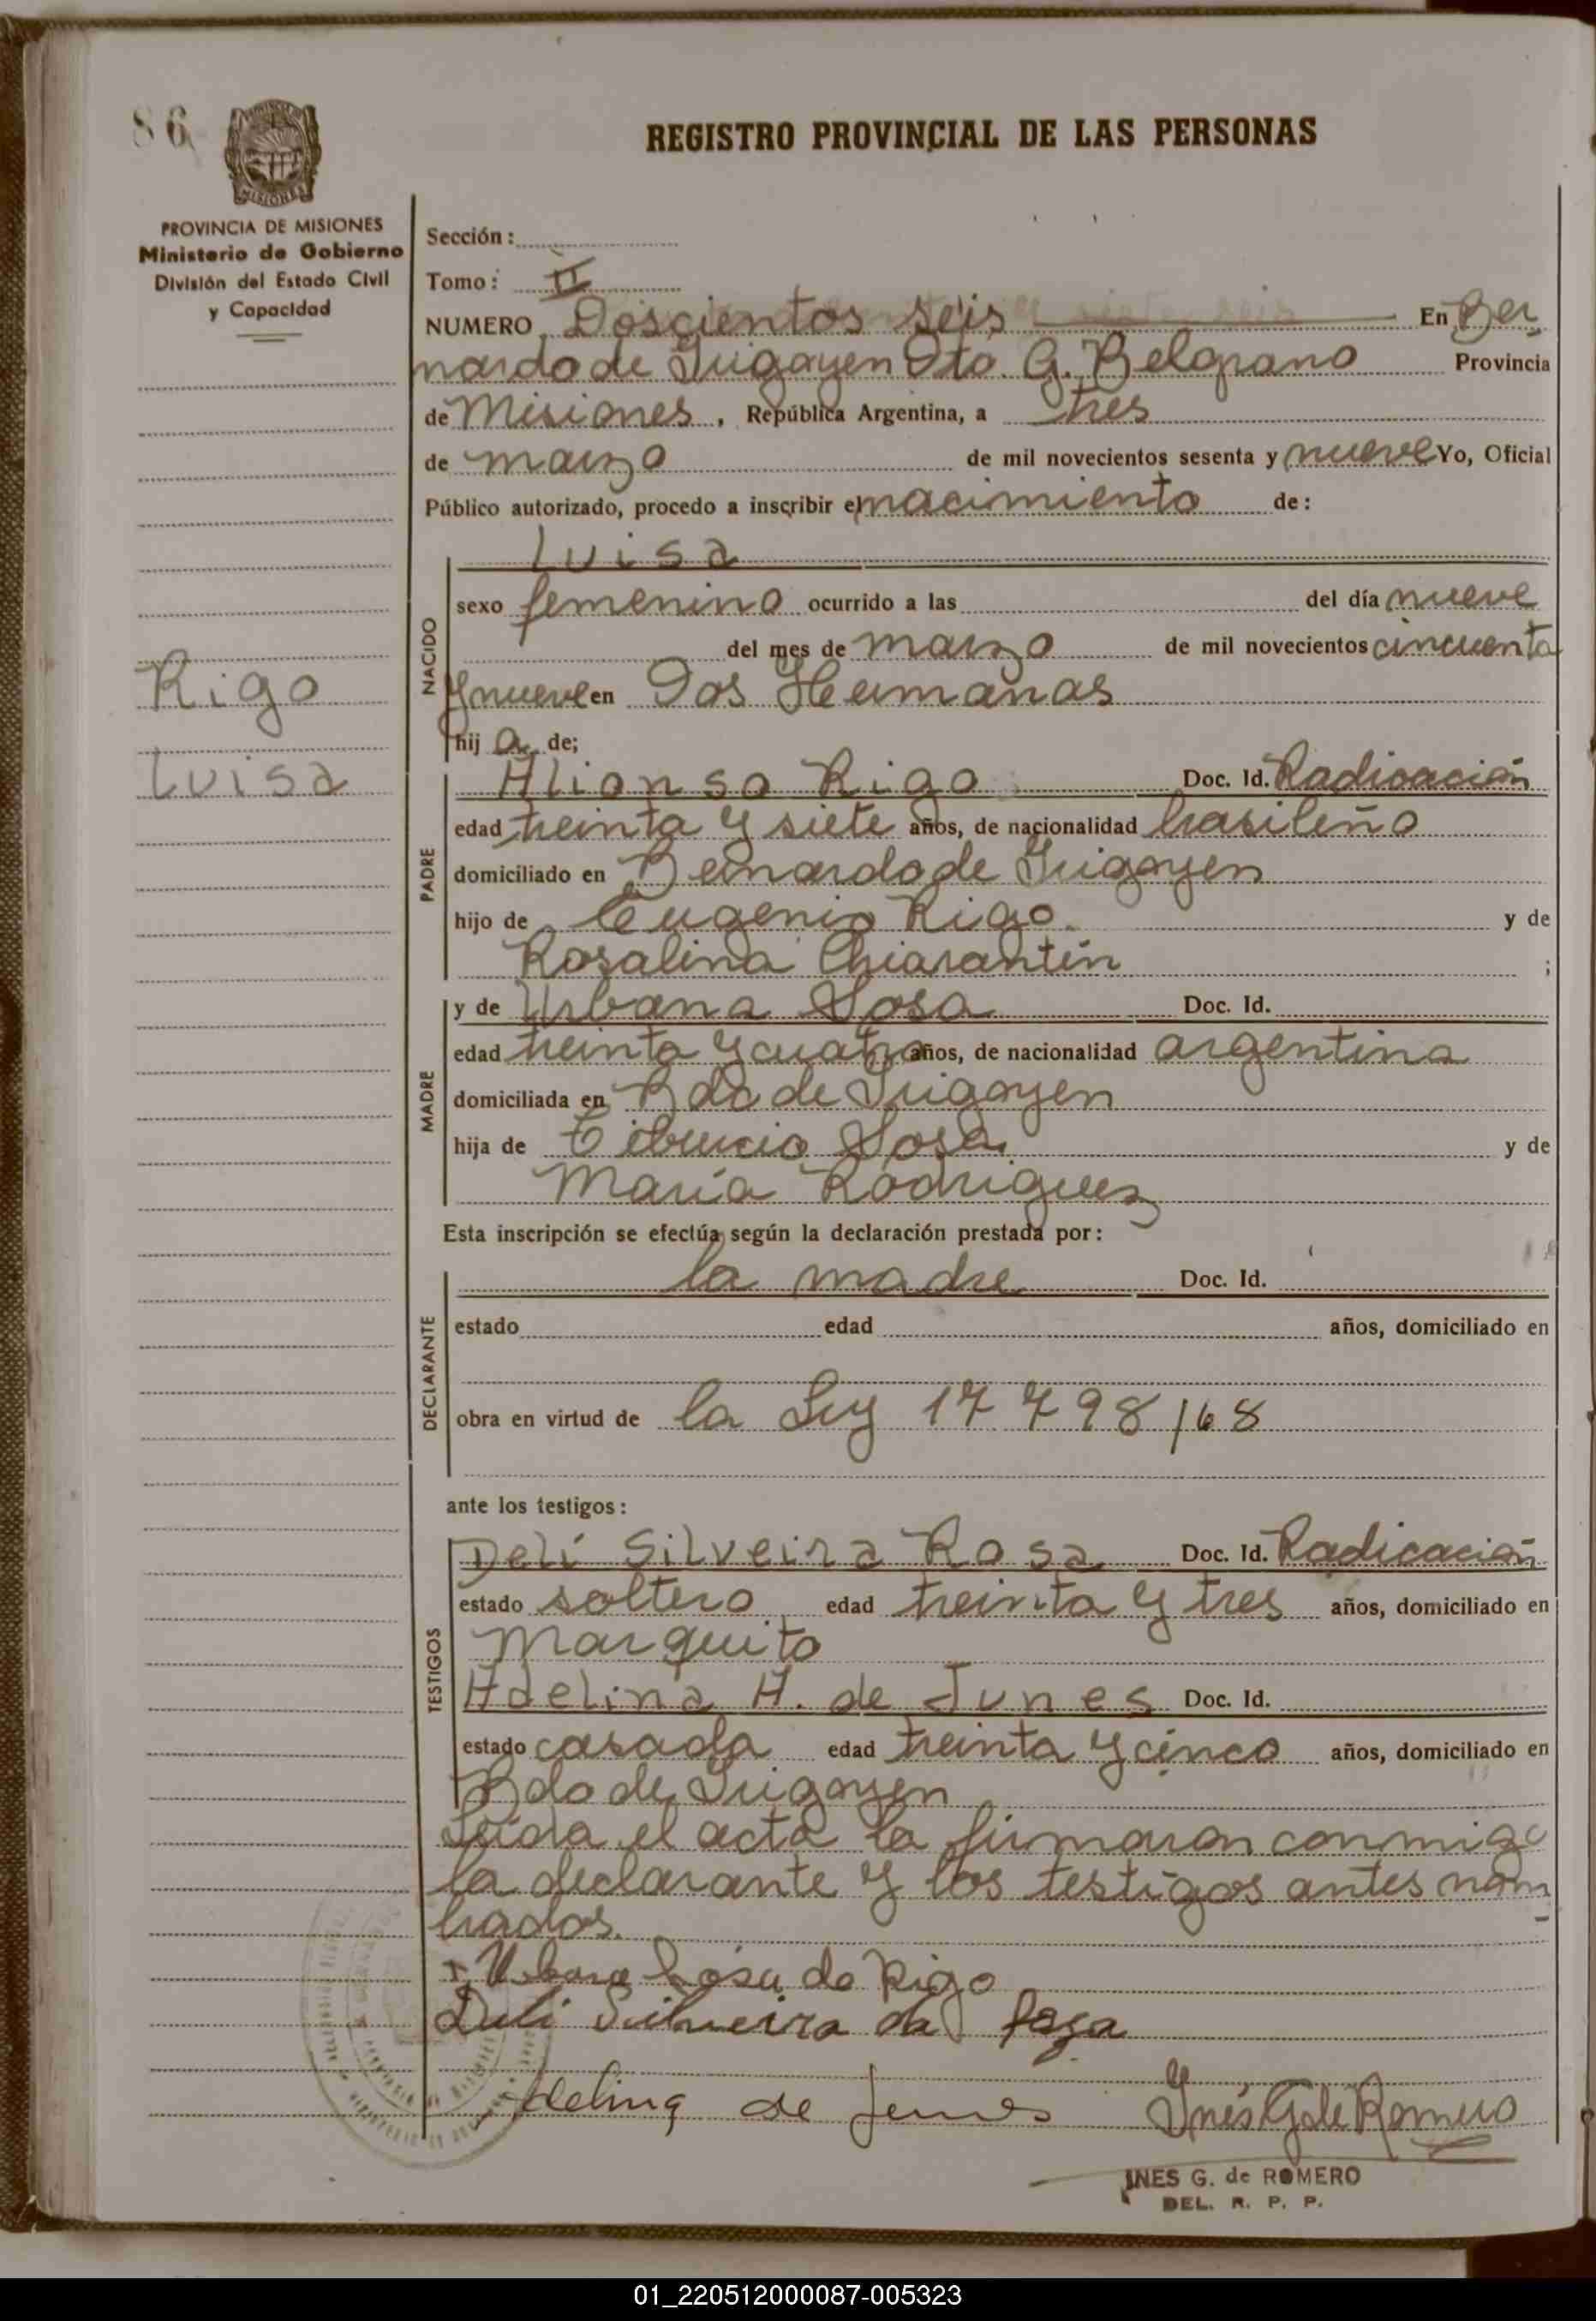 86
REGISTRO PROVINCIAL DE LAS PERSONAS
MISIONES
PROVINCIA DE MISIONES
Ministerio de Gobierno
División del Estado Civil
y Capacidad
Sección:
Tomo: II
NUMERO Doscientos seis En Ber
nardo de Irigoyen Dto. G. Belgrano Provincia
de Misiones, República Argentina, a tres
de marzo de mil novecientos sesenta y nueve Yo, Oficial
Público autorizado, procedo a inscribir el nacimiento de:
Luisa
NACIDO
sexo femenino ocurrido a las del día nueve
del mes de marzo de mil novecientos cincuenta
y nueve en Dos Hermanas
hij a de;
Rigo
Luisa
PADRE
Alionso Rigo Doc. Id. Radicación
edad treinta y siete años, de nacionalidad brasileño
domiciliado en Bernardo de Irigoyen
hijo de Eugenio Rigo y de
Rosalina Chiarantin ;
MADRE
y de Urbana Sosa Doc. Id.
edad treinta y cuatro años, de nacionalidad argentina
domiciliada en Bdo de Irigoyen
hija de Tiburcio Sosa y de
María Rodriguez
Esta inscripción se efectúa según la declaración prestada por:
DECLARANTE
la madre Doc. Id.
estado edad años, domiciliado en
obra en virtud de la Ley 17798/68
ante los testigos:
TESTIGOS
Delí Silveira Rosa Doc. Id. Radicación
estado soltero edad treinta y tres años, domiciliado en
Marquito
Adelina A. de Junes Doc. Id.
estado casada edad treinta y cinco años, domiciliado en
Bdo de Irigoyen
Leída el acta la firmaron conmigo
la declarante y los testigos antes nom
brados.
Urbana Sosa de Rigo
Deli Silveira da Rosa
Adelina de Junes Inés G de Romero
INES G. de ROMERO
DEL. R. P. P.
01_220512000087-005323